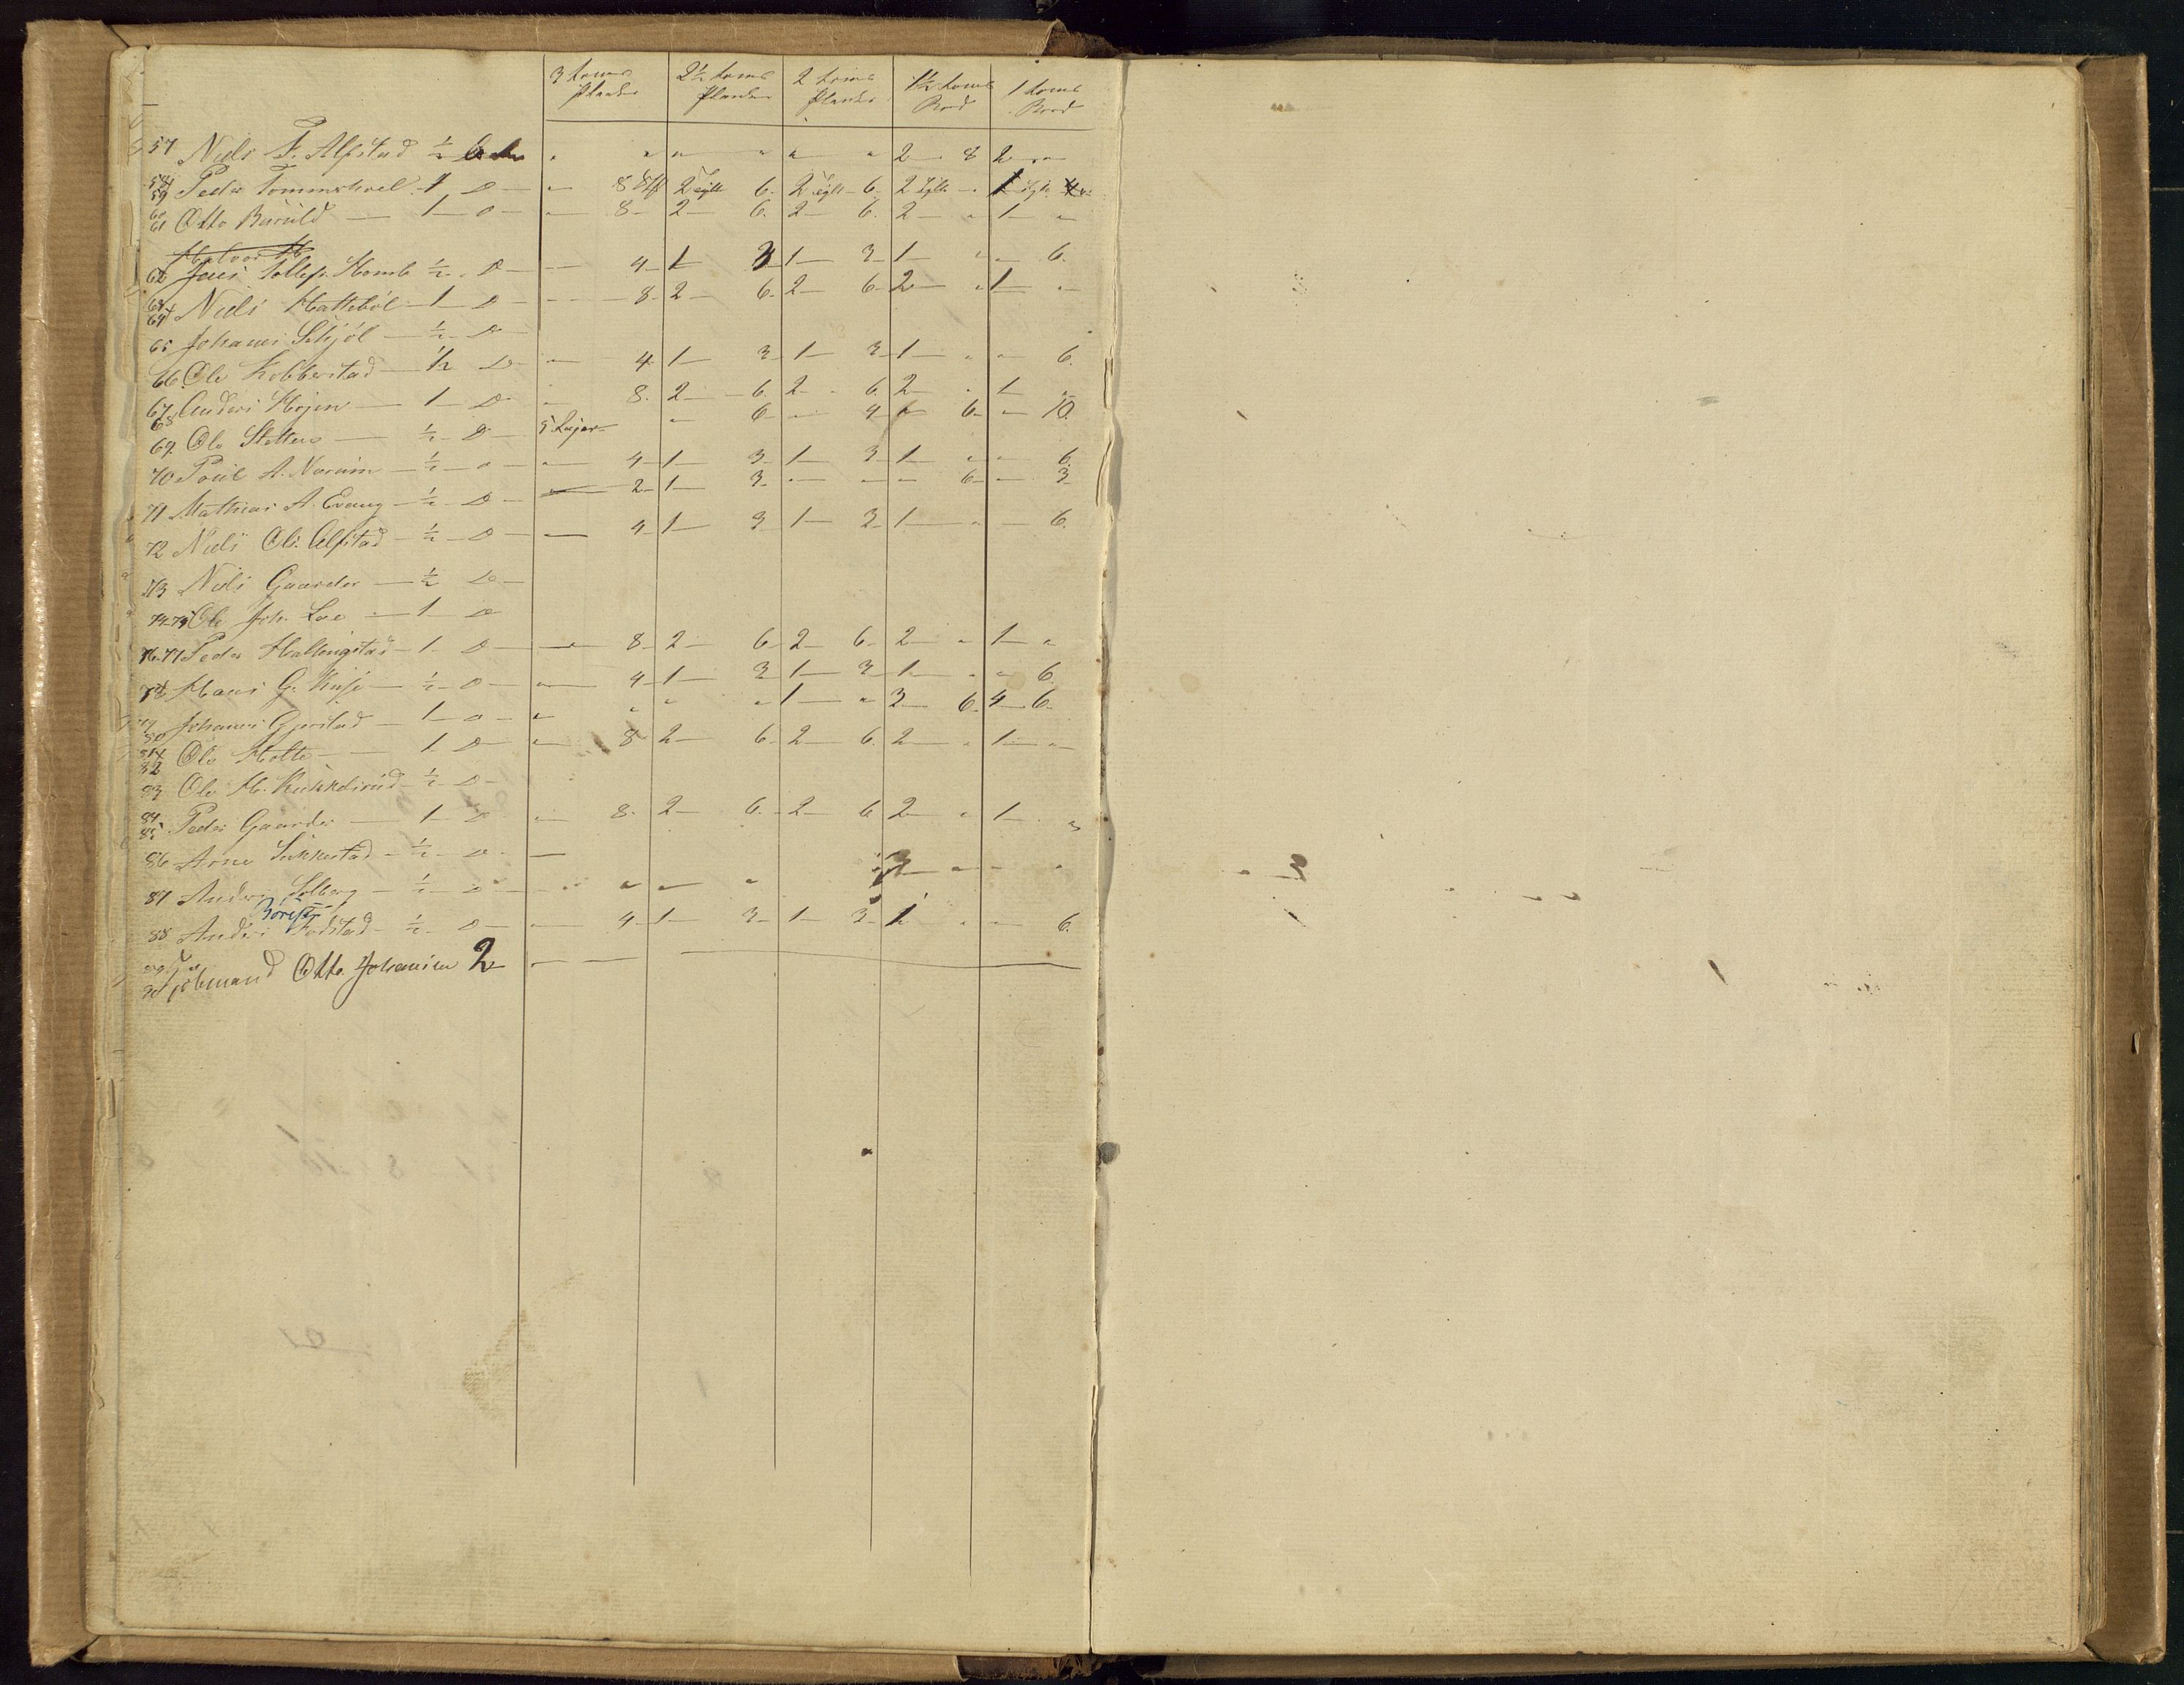 3 toms 2½ toms 2 toms 1½ toms 1 toms
Planker Planker Planker Bord Bord
57 Niels F. Alfstad ½ " " " " " " 2 8 2 "
58 59 Peder Tommerhoel 1 D " 8 2 Tylt 6 2 Tylt 6 2 Tylt " 1 Tylt
60 61 Otto Buruld 1 D " 8 2 6 2 6 2 " 1 "
Halvor H
62 Jens Tollefs. Homb ½ D — 4 1 3 1 3 1 " " 6
63 64 Niels Hattebøl 1 D — 8 2 6 2 6 2 " 1 "
65 Johanes Schjöl ½ D
66 Ole Kobberstad ½ D — 4 1 3 1 3 1 " " 6
67 68 Anders Hojen 1 D " 8 2 6 2 6 2 " 1 "
69 Ole Sletten ½ D 5 " 6 " 4 6 " 10
70 Poul A. Narum ½ D " 4 1 3 1 3 1 " " 6
71 Mathias A. Evang ½ D — 2 1 3 " " " 6 " 3
72 Niels Ols. Alfstad ½ D — 4 1 3 1 3 1 " — 6
73 Niels Gaarder ½ D
74 75 Ole Joh. Loe 1 D
76 77 Peder Hallingstad 1 D — 8 2 6 2 6 2 " 1 "
78 Hans G. ½ D " 4 1 3 1 3 1 " " 6
79 80 Johanes Gjerstad 1 D " " " " 1 " 3 6 4 6
81 82 Ole Holte 1 D " 8 2 6 2 6 2 " 1 "
83 Ole H. Kukkelsrud ½ D
84 85 Peder Gaarder 1 D " 8 2 6 2 6 2 " 1 "
86 Arne Sukkestad ½ D — 3 " "
87 Anders Solberg ½ D " " " "
88 Anders Fodstad ½ D — 4 1 3 1 3 1 " " 6
Otto Johansen 2 —